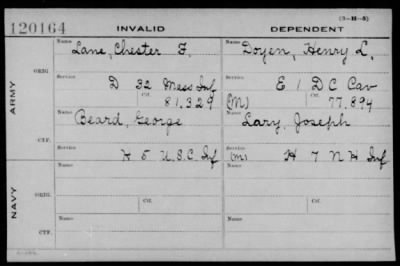 (3-H-5)
120164 INVALID DEPENDENT
Name Lane, Chester F. Name Doyen, Henry L.
ORIG. Service D 32 Mass Inf Service E 1 D C Cav
Ctf. 81,329 (M) Ctf. 77,894
ARMY
Name Beard, George Name Lary, Joseph
CTF. Service H 5 U.S.C. Inf Service (M) H 7 N H Inf
Name Name
NAVY ORIG. Ctf. Ctf.
Name Name
CTF.